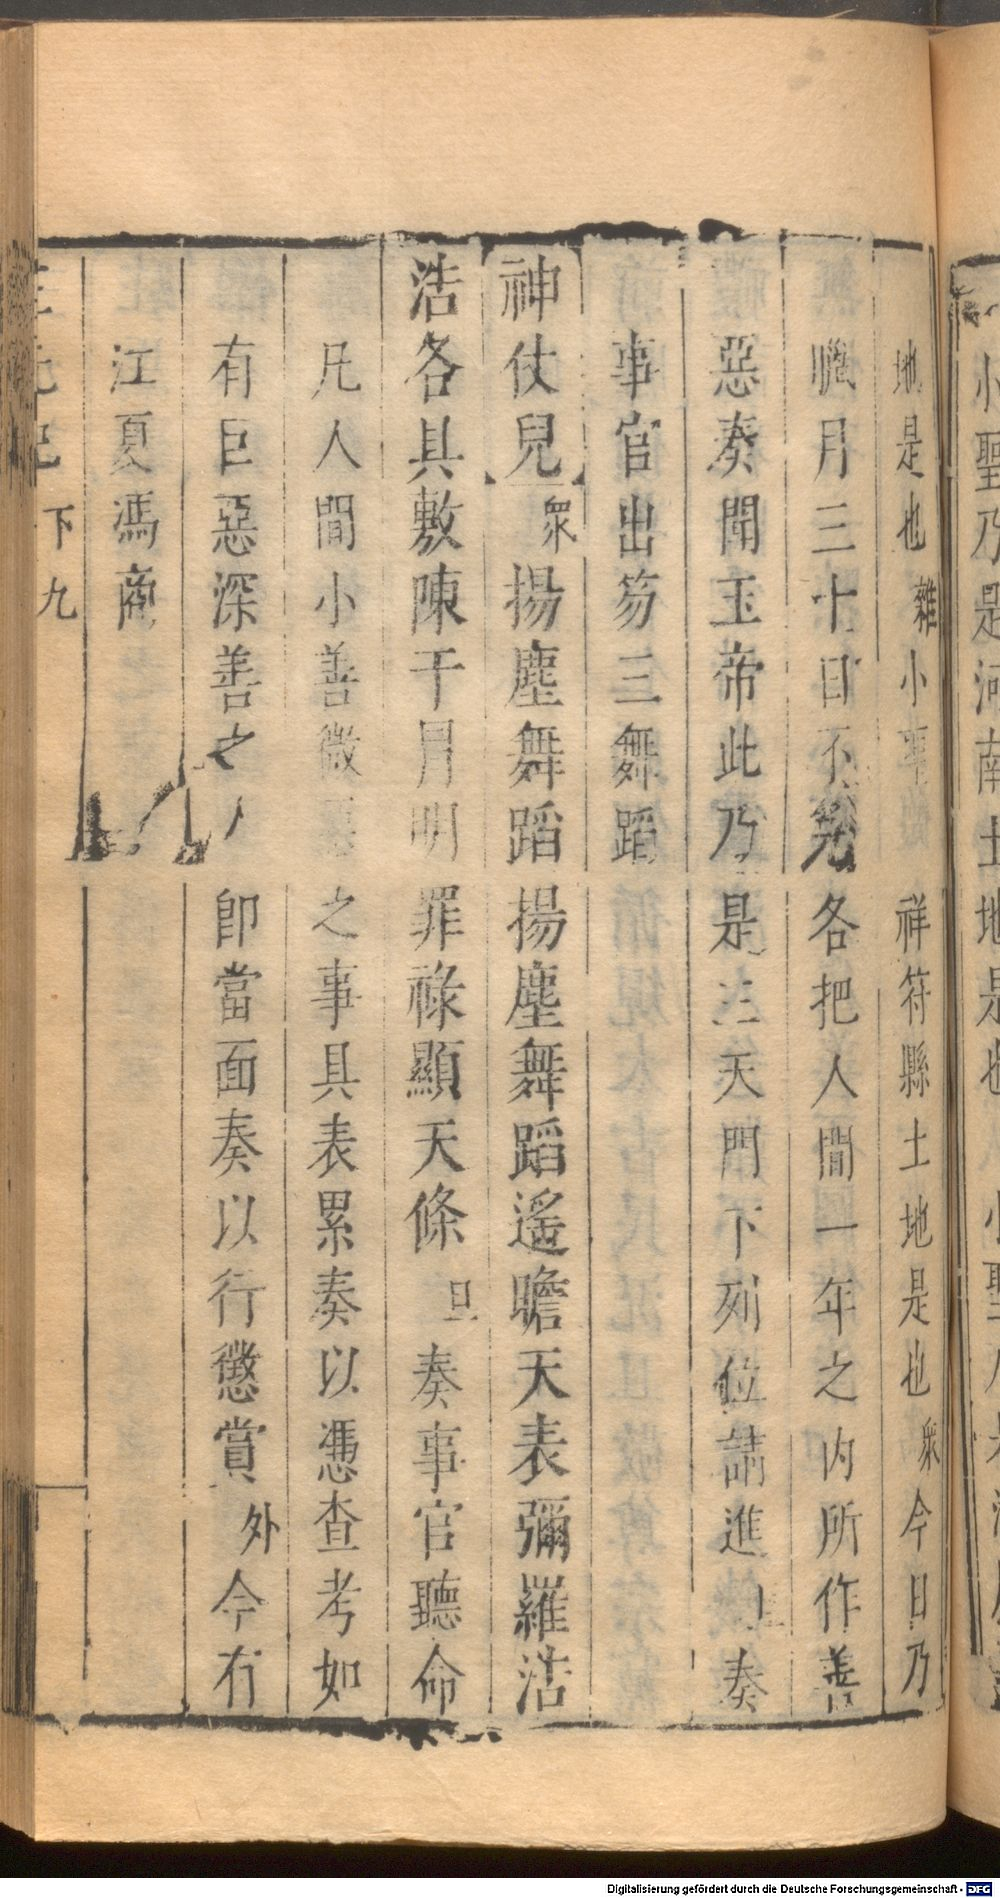 小聖乃是河南土地是也
地是也雜小聖
祥符縣土地是也衆今日乃
臘月三十日不免各把人間一年之內所作善
惡奏聞玉帝此乃是三天門下列位請進奏
事官出笏三舞蹈
神仗兒衆揚塵舞蹈揚塵舞蹈遙瞻天表彌羅浩
浩各具敷陳干月明罪祿顯天條旦奏事官聽命
凡人間小善微惡之事具表累奏以憑查考如
有巨惡深善之人即當面奏以行懲賞外今有
江夏馮商
三元記 下 九
Digitalisierung gefördert durch die Deutsche Forschungsgemeinschaft - DFG